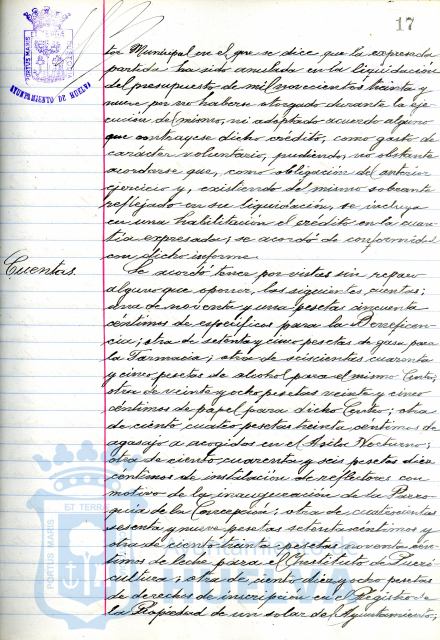 17
PORTUS MARIS
ET TERRAE
AYUNTAMIENTO DE HUELVA
tor Municipal en el que se dice que la expresada
partida ha sido anulada en la liquidación
del presupuesto de mil novecientos treinta y
nueve por no haberse otorgado durante la eje
cución del mismo, ni adoptado acuerdo alguno
que contrayese dicho crédito, como gasto de
carácter voluntario, pudiendo, no obstante
acordarse que, como obligación del anterior
ejercicio y, existiendo del mismo sobrante
reflejado en su liquidación, se incluya
en una habilitación el crédito en la cuan
tía expresada; se acordó de conformidad
con dicho informe.
Cuentas.
Se acordó tener por vistas sin reparo
alguno que oponer, las siguientes cuentas;
una de noventa y una pesetas cincuenta
céntimos de específicos para la Beneficen
cia; otra de setenta y cinco pesetas de gasa para
la Farmacia; otra de seiscientas cuarenta
y cinco pesetas de alcohol para el mismo Centro;
otra de veinte y ocho pesetas veinte y cinco
céntimos de papel para dicho Centro; otra
de ciento cuatro pesetas treinta céntimos de
agasajo a acogidos en el Asilo Nocturno;
otra de ciento cuarenta y seis pesetas diez
céntimos de instalación de reflectores con
motivo de la inauguración de la Parro
quia de la Concepción; otra de cuatrocientas
sesenta y nueve pesetas setenta céntimos y
otra de ciento treinta pesetas noventa cén
timos de leche para el Instituto de Pueri
cultura; otra de ciento diez y ocho pesetas
de derechos de inscripción en el Registro de
la Propiedad de un solar del Ayuntamiento;
ET TERRAE
PORTUS MARIS
Ayuntamiento de
HUELVA